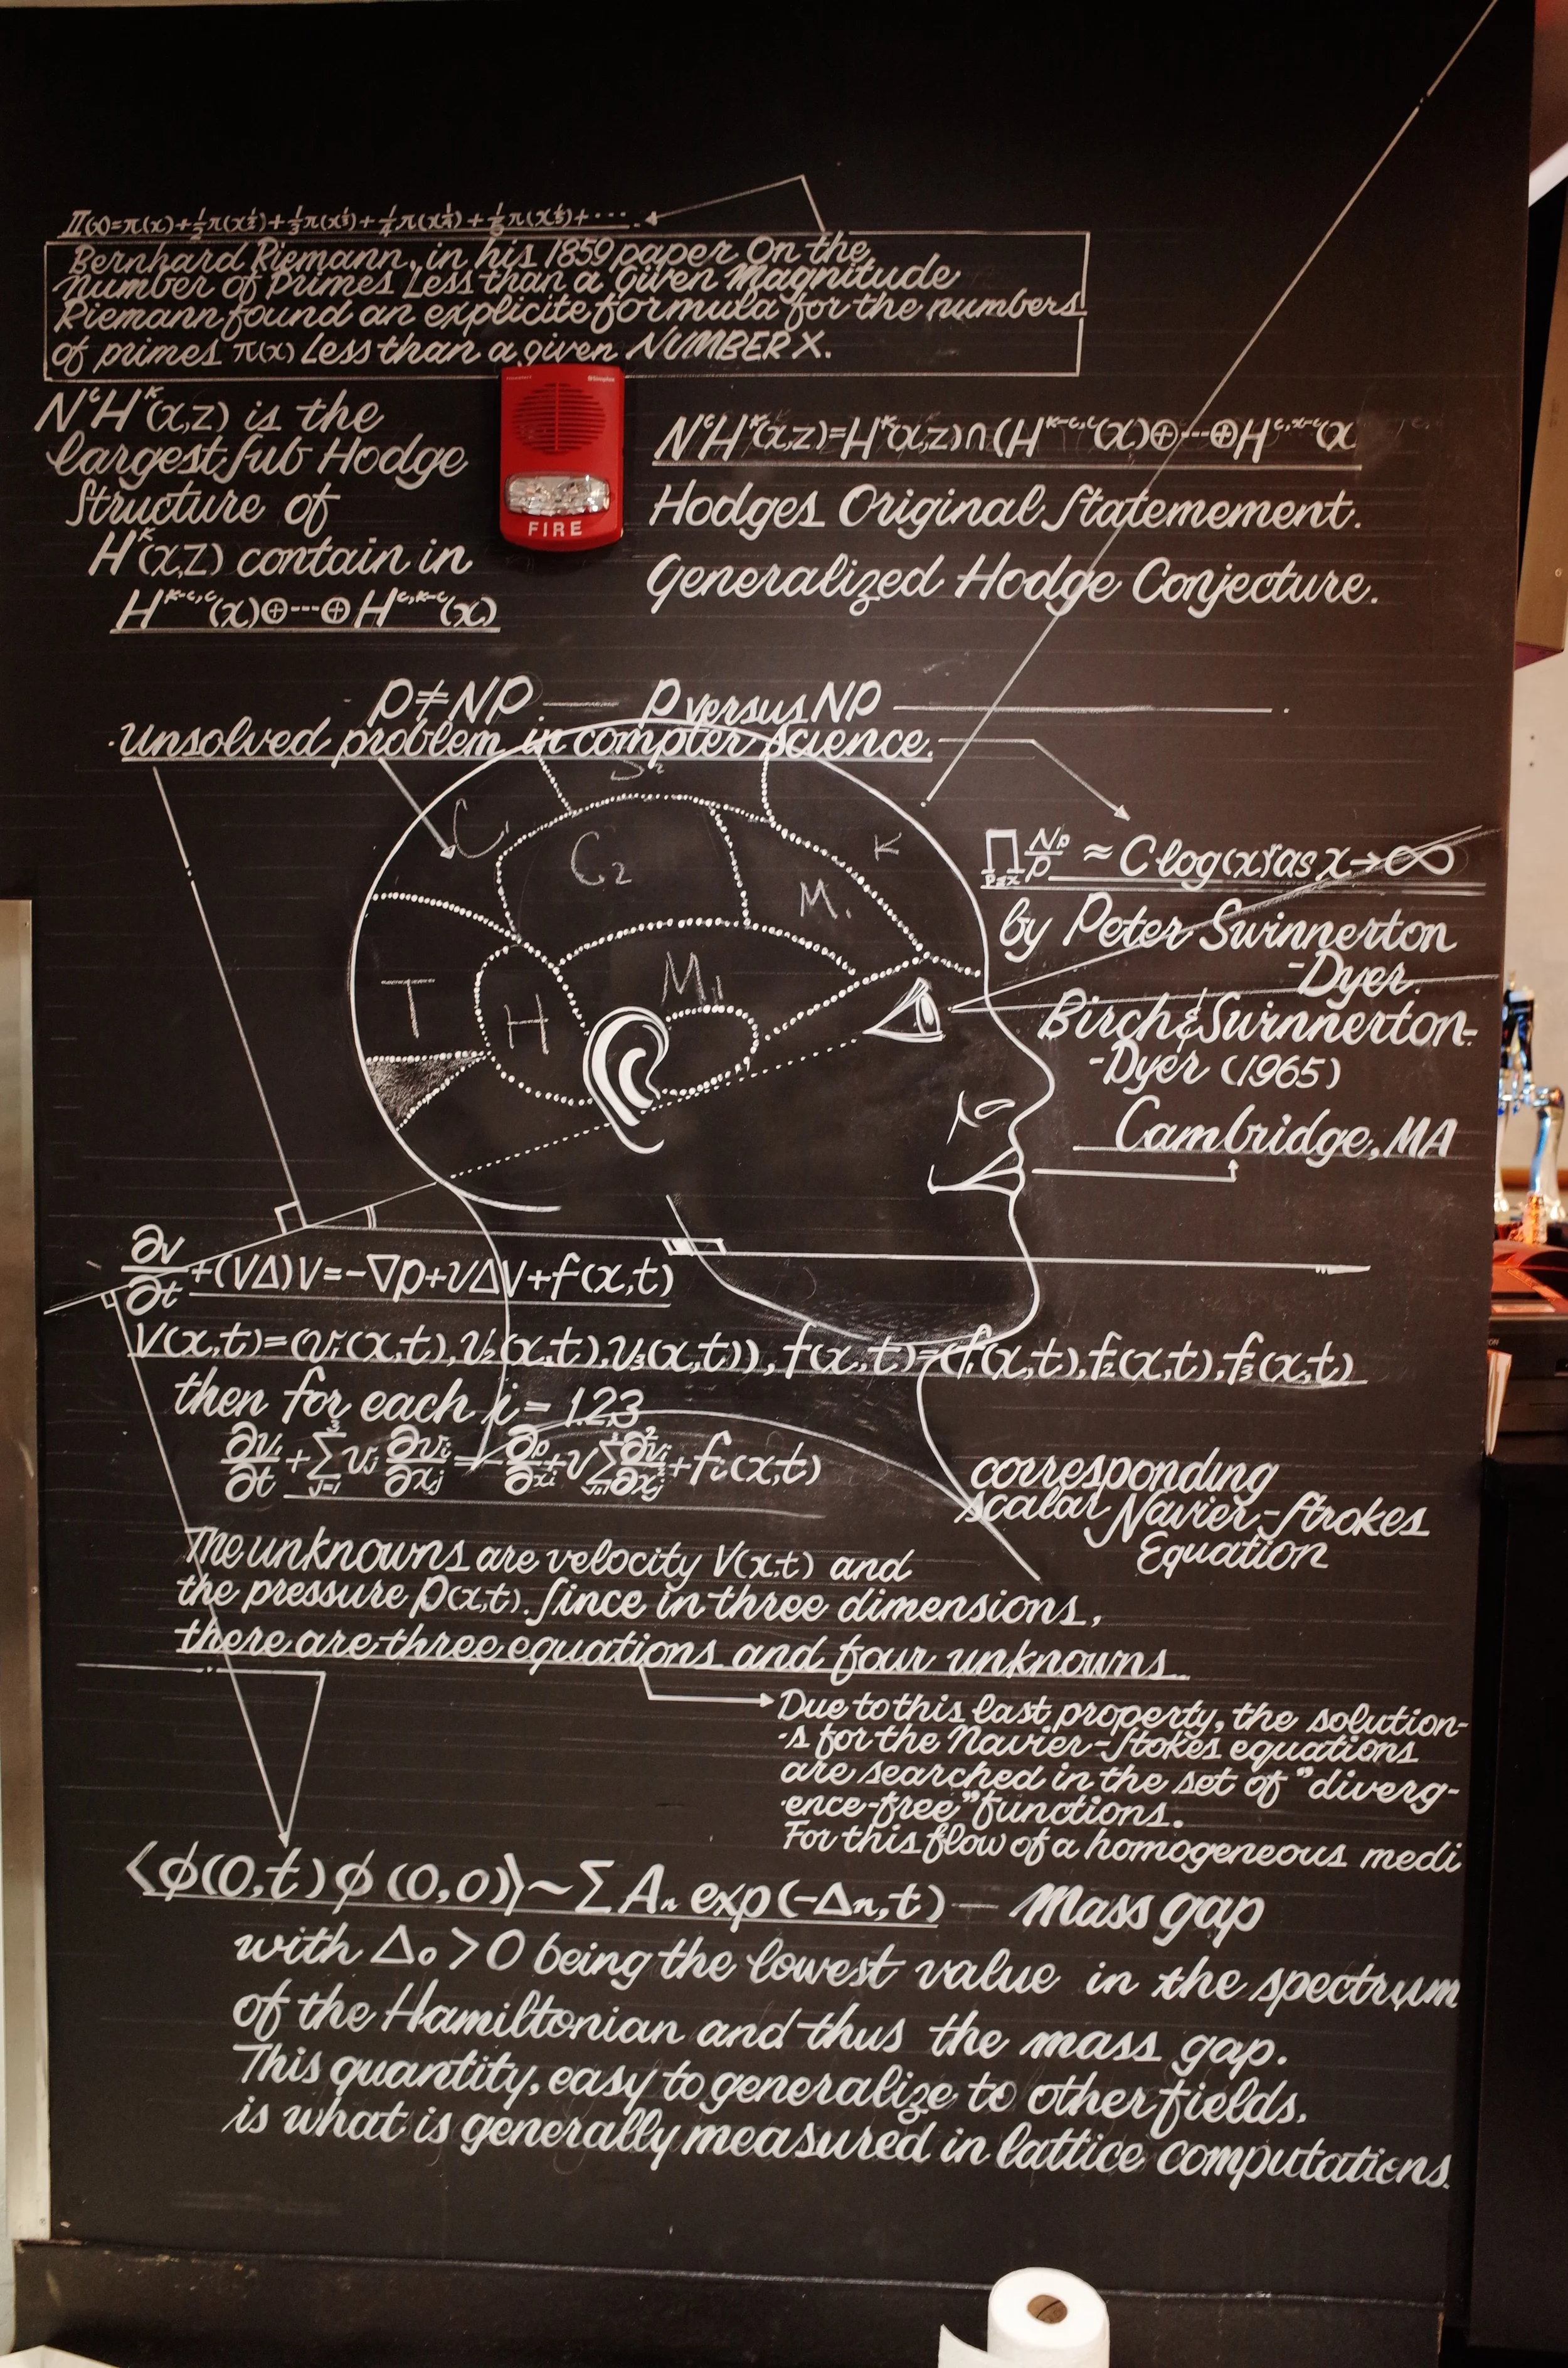 Π(x)=π(x)+½π(x^½)+⅓π(x^⅓)+¼π(x^¼)+⅕π(x^⅕)+···
Bernhard Riemann, in his 1859 paper On the
number of Primes Less than a Given Magnitude
Riemann found an explicite formula for the numbers
of primes π(x) Less than a given NUMBER X.
NᶜHᵏ(x,z) is the
largest sub Hodge
Structure of
Hᵏ(x,Z) contain in
Hᵏ⁻ᶜ,ᶜ(x)⊕---⊕Hᶜ,ᵏ⁻ᶜ(x)
FIRE
NᶜHᵏ(x,z)=Hᵏ(x,z)∩(Hᵏ⁻ᶜ,ᶜ(x)⊕---⊕Hᶜ,ᵏ⁻ᶜ(x
Hodges Original Statemement.
Generalized Hodge Conjecture.
P≠NP P versus NP
Unsolved problem in compter science.
C₁ S₂ K
C₂ M.
T H M₁₁
∏ p≤x Np/p ≈ C log(x)ʳ as x→∞
by Peter Swinnerton
-Dyer.
Birch & Swinnerton-
-Dyer (1965)
Cambridge, MA
∂v/∂t+(VΔ)V=-∇p+νΔV+f(x,t)
V(x,t)=(v₁(x,t),v₂(x,t),v₃(x,t)), f(x,t)=(f₁(x,t),f₂(x,t),f₃(x,t)
then for each i = 1.2.3
∂vᵢ/∂t+∑³ⱼ₌₁ vⱼ ∂vᵢ/∂xⱼ=-∂p/∂xᵢ+ν∑³ⱼ₌₁ ∂²vᵢ/∂xⱼ²+fᵢ(x,t)
corresponding
scalar Navier-Strokes
Equation
The unknowns are velocity V(x,t) and
the pressure P(x,t). Since in three dimensions,
there are three equations and four unknowns.
Due to this last property, the solution-
-s for the Navier-Stokes equations
are searched in the set of "diverg-
-ence-free" functions.
For this flow of a homogeneous medi
⟨ϕ(0,t)ϕ(0,0)⟩~∑Aₙ exp(-Δn,t) — Mass gap
with Δ₀>0 being the lowest value in the spectrum
of the Hamiltonian and thus the mass gap.
This quantity, easy to generalize to other fields,
is what is generally measured in lattice computations.